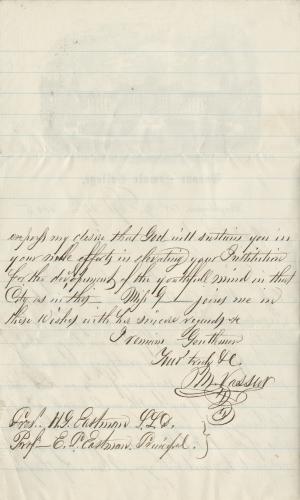 express my desire that God will sustain you in
your noble efforts in elevating your Institution
for the development of the youthfull mind in that
City
Miss G— joins me in
these wishes with her sincere regards &c
I remain Gentlemen
Your truly &c.
Prof. H. G. Eastman L.L.D.
Prof— E. P. Eastman, Principal.